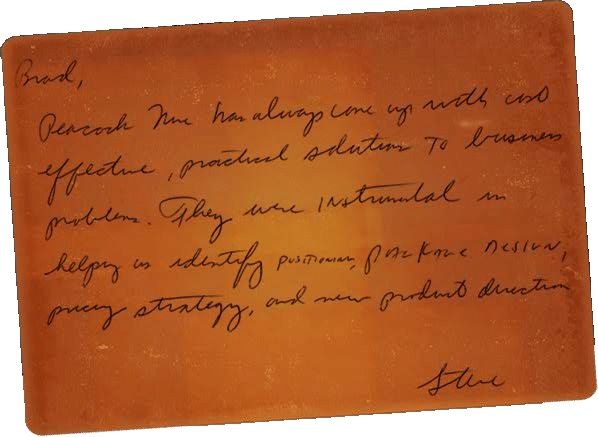 Brad,
Peacock Nine has always come up with cost
effective, practical solutions to business
problems. They were instrumental in
helping us identify positioning, package design,
pricing strategy, and new product direction
Steve